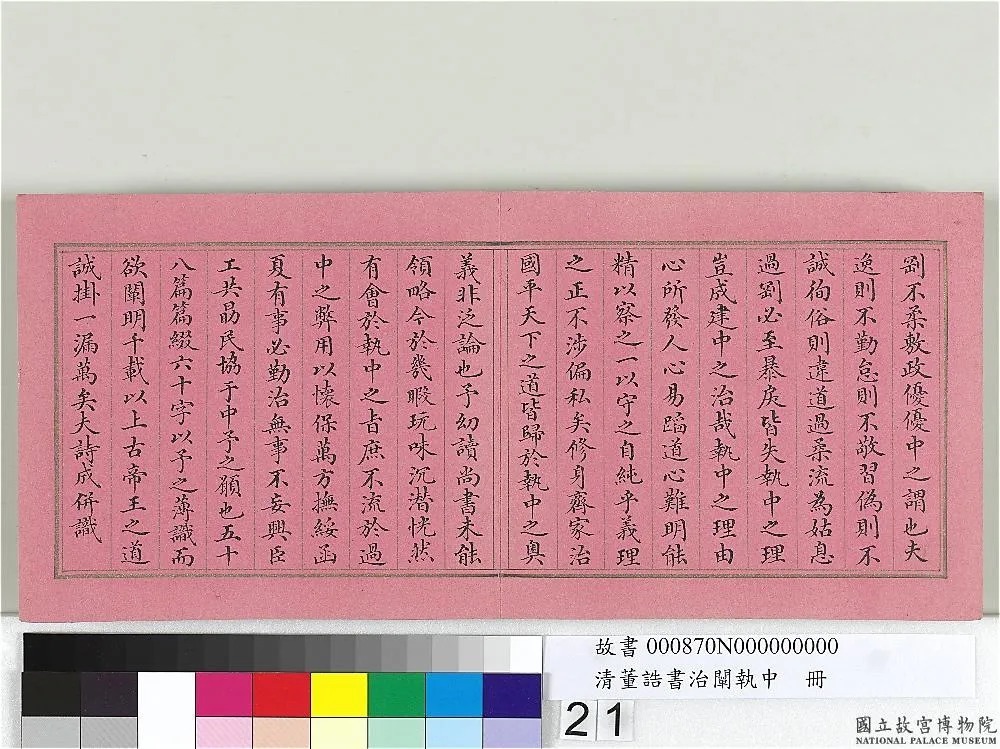 剛不柔敷政優優中之謂也夫
逸則不勤怠則不敬習偽則不
誠徇俗則違道過柔流為姑息
過剛必至暴戾皆失執中之理
豈成建中之治哉執中之理由
心所發人心易蹈道心難明能
精以察之一以守之自純乎義理
之正不涉偏私矣修身齊家治
國平天下之道皆歸於執中之奧
義非泛論也予幼讀尚書未能
領略今於幾暇玩味沉潛恍然
有會於執中之旨庶不流於過
中之弊用以懷保萬方撫綏函
夏有事必勤治無事不妄興臣
工共勗民協于中予之願也五十
八篇篇綴六十字以予之薄識而
欲闡明千載以上古帝王之道
誠掛一漏萬矣夫詩成併識
故書 000870N000000000
清董誥書治闡執中 冊
21
國立故宮博物院
NATIONAL PALACE MUSEUM